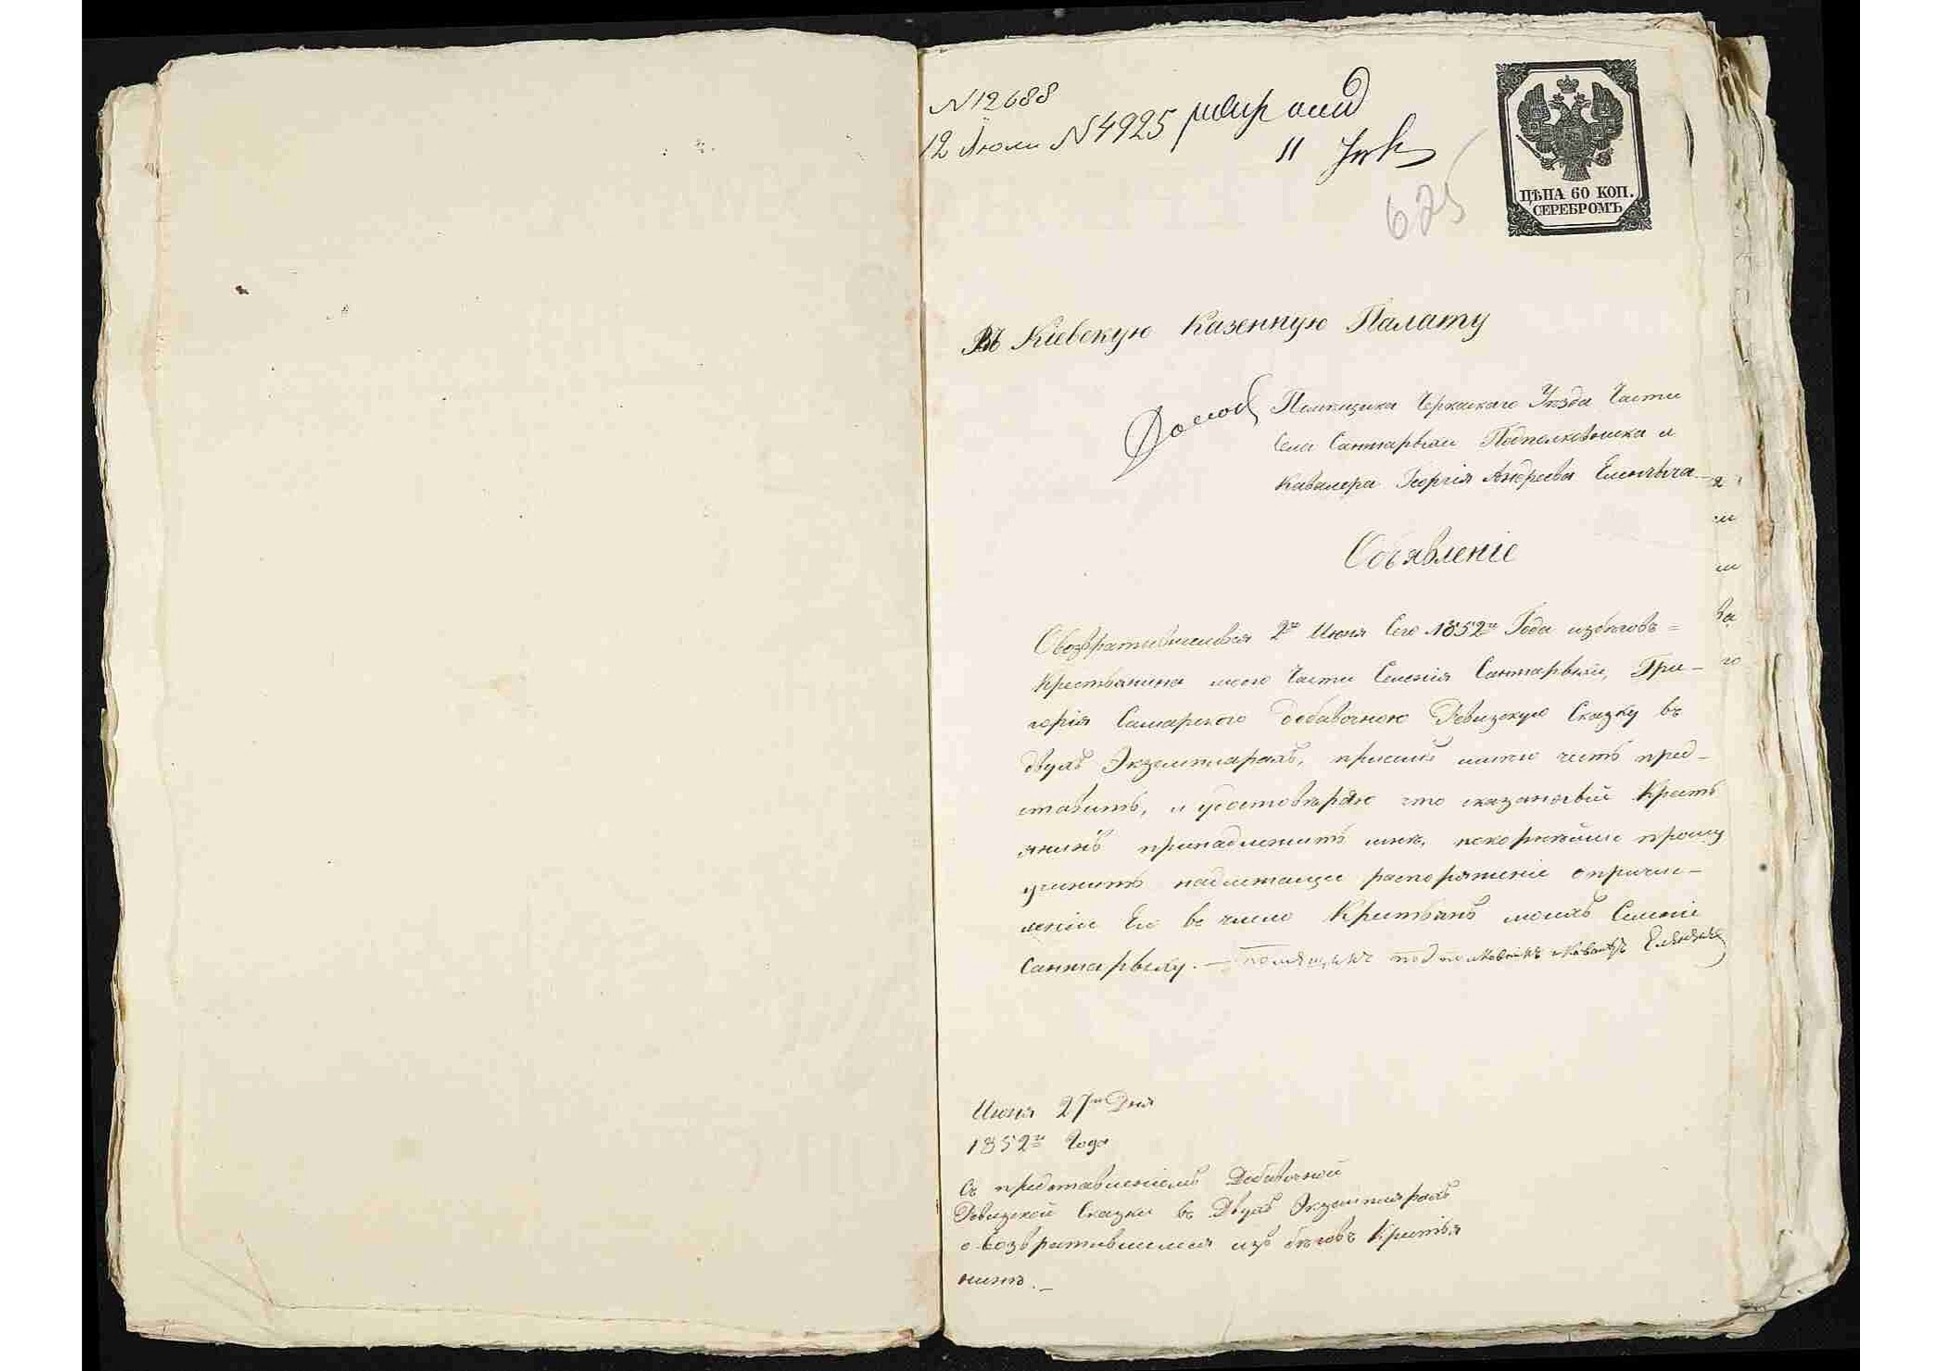 N 12688
12 Июля N 4925
11
625
ЦѢНА 60 КОП.
СЕРЕБРОМЪ
Въ Кіевскую Казенную Палату
Помещика Черкаскаго Уезда Части
Села Сантарѣки Подполковника и
Кавалера Георгія Андреева
Объявленіе
Овозвратившемся 2го Июня Сего 1852го Года избеговъ=
Крестьянина моего Части Селенія Сантарѣки, Гри-
горія Самарского добавочною Ревизскую Сказку въ
двухъ Экземплярахъ, присемъ имею честь пред-
ставить, и удостовѣряю что сказанный Кресть
янинъ принадлежитъ мнѣ, покорнѣйше прошу
учинить надлежащее распоряженіе опричис-
леніи Его въ число Крестьянъ моихъ Селеніе
Сантарѣку. — помѣщикъ подполковникъ
Июня 27го Дня
1852го Года
Съ представленіемъ Добавочной
Ревизской Сказки въ Двухъ Экземплярахъ
о Возвратившемся изъ бѣговъ Крестья
нинѣ. —